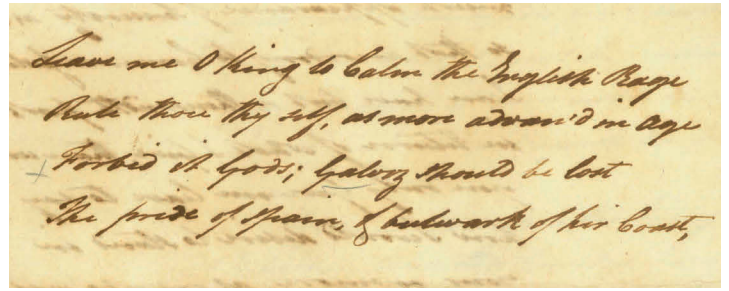 Leave me O King to Calm the English Rage
Rule thou thy self, as more advan'd in age
Forbid it Gods; Galvoz should be lost
The pride of Spain, & bulwark of his Coast,